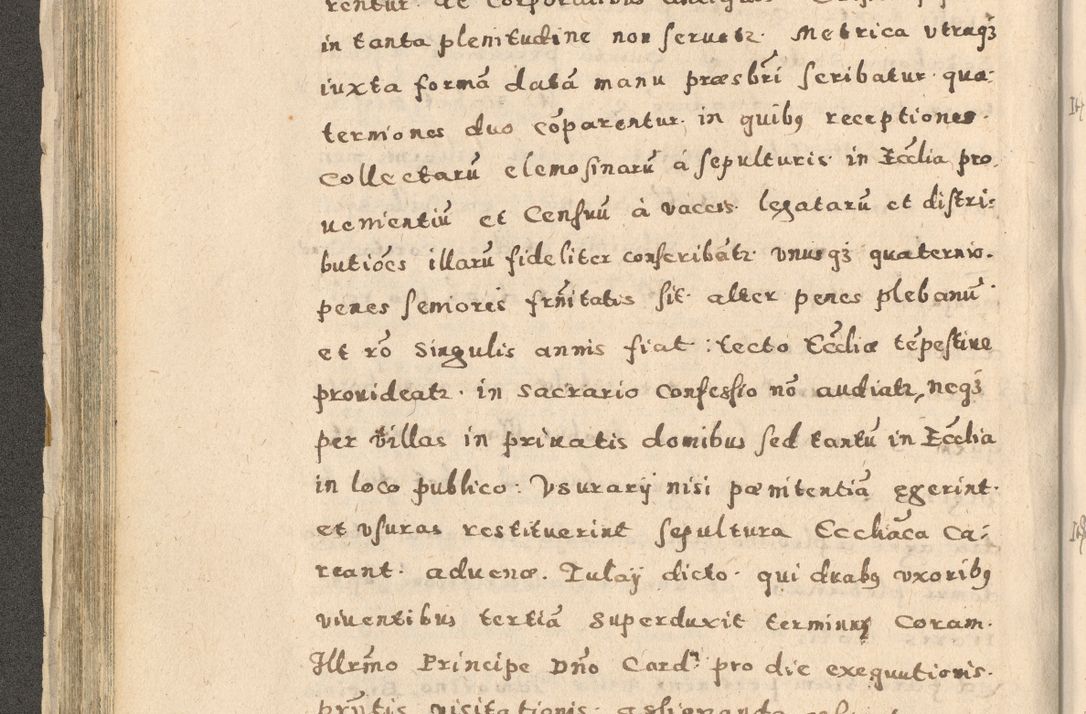 in tanta plenitudine non seruetr. Metrica utraqȝ
iuxta formā datā manu præsbrī scribatur. qua-
terniones duo cōparentur. in quibꝰ receptiones.
collectarū elemosinarū à sepulturis in Ecc̄lia pro
uenientiū et Censuū à vaccis legatarū et distri-
butiōes illarū fideliter conscribātr. vnusqȝ quaternio.
penes seniores frñitatis sit. alter penes plebanū.
et rō singulis annis fiat: tecto Ecc̄liæ tēpestiue
prouideatr. in sacrario confessio nō audiatr, neqȝ
per villas in priuatis domibus sed tantū in Ecc̄lia
in loco publico: Vsurarij nisi pœnitentiā ęgerint.
et vsuras restituerint sepultura Eccliāca Ca-
reant. aduenæ. Tulaij dicto. qui duabꝰ vxoribꝰ
viuentibus tertiā superduxit terminus Coram.
Illr̄mo Principe Dn̄o Card. pro die exequutionis.
prn̄tis visitationis